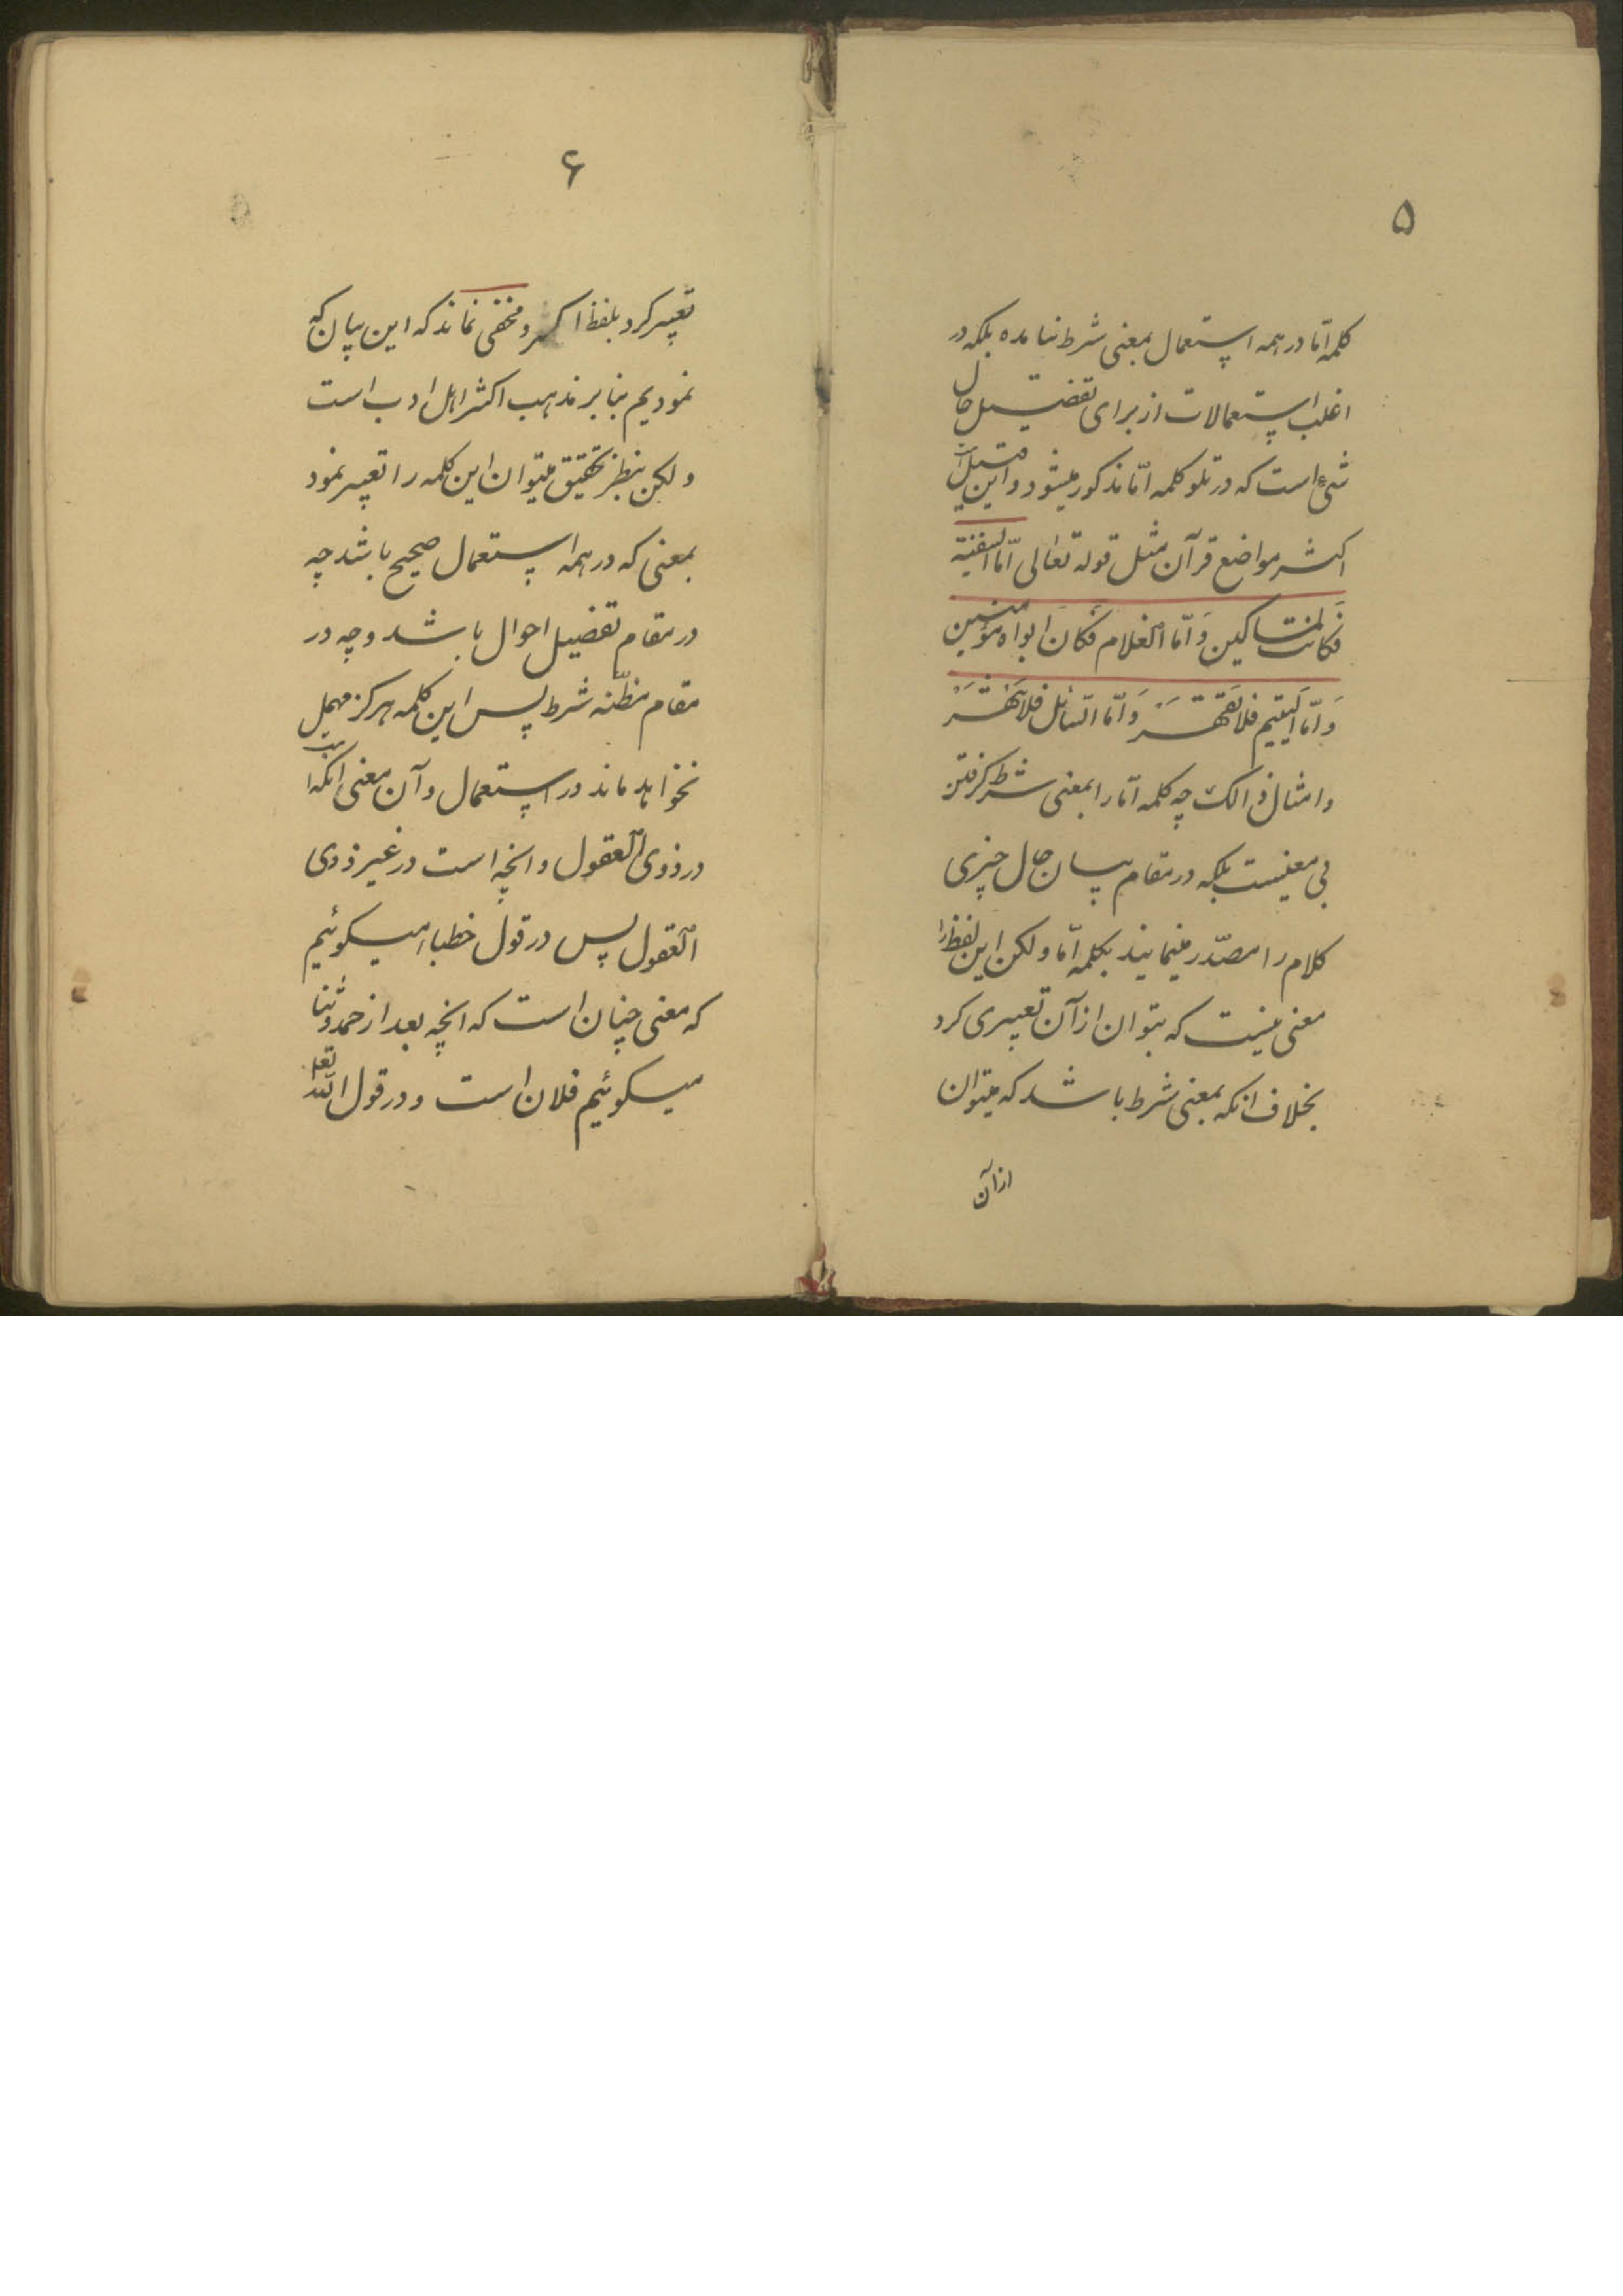 ۵
کلمه امّا در همه استعمال بمعنی شرط نیامده بلکه در
اغلب استعمالات از برای تفضیل حال
شیء است که در تلو کلمه امّا مذکور میشود و از این قبیل است
اکثر مواضع قرآن مثل قوله تعالی امّا السفینة
فَکانت لمساکین وَ امّا الغلام فکَانَ ابواه مؤمنین
وَ امّا الیتیم فلا تقهَر وَ امّا السّائل فلا تنهَر
و امثال ذالک چه کلمه امّا را بمعنی شرط گرفتن
بی معنیست بلکه در مقام بیان حال چیزی
کلام را مصدّر مینمایند بکلمه امّا ولکن این لفظ را
معنی نیست که بتوان از آن تعبیری کرد
بخلاف انکه بمعنی شرط باشد که میتوان
از آن
۶
تعبیر کرد بلفظ اگر و مخفی نماند که این بیان که
نمودیم بنا بر مذهب اکثر اهل ادب است
ولکن بنظر تحقیق میتوان این کلمه را تعبیر نمود
بمعنی که در همه استعمال صحیح باشد چه
در مقام تفضیل احوال باشد و چه در
مقام مظنّه شرط پس این کلمه هرگز مهمل
نخواهد ماند در استعمال و آن معنی انکه است
در ذوی العقول و انچه است در غیر ذوی
العقول پس در قول خطبا میگوئیم
که معنی چنان است که انچه بعد از حمد و ثنا
میگوئیم فلان است و در قول الله تعا